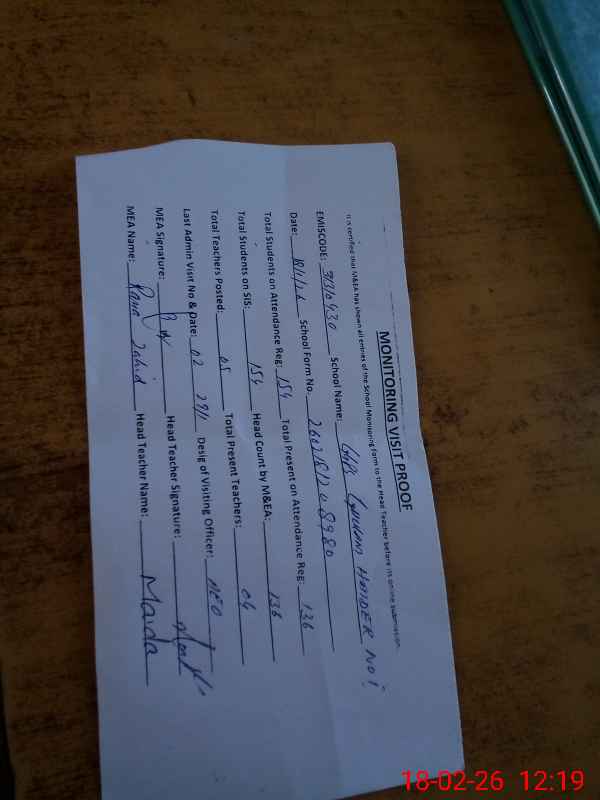 MONITORING VISIT PROOF
It is certified that M&EA has shown all entries of the School Monitoring Form to the Head Teacher before its online submission.
EMISCODE: 31310430 School Name: HAIDER NO 1
Date: 18/1/26 School Form No. 2602181208980
Total Students on Attendance Reg: 154 Total Present on Attendance Reg: 136
Total Students on SIS: 154 Head Count by M&EA: 136
Total Teachers Posted: 05 Total Present Teachers: 04
Last Admin Visit No & Date: 02 29/1 Desig of Visiting Officer: AEO
MEA Signature: Head Teacher Signature:
MEA Name: Rana Zahid Head Teacher Name: Maida
18-02-26 12:19